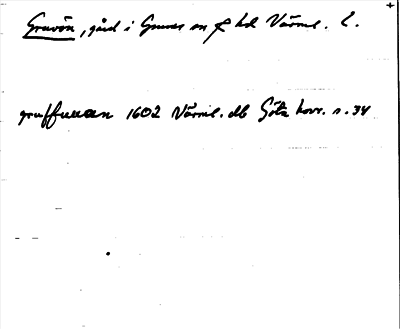 Gruvön, gård i Grums sn o hd Värml. l.
gruffuuan 1602 Värml. db Göta hovr. s. 34